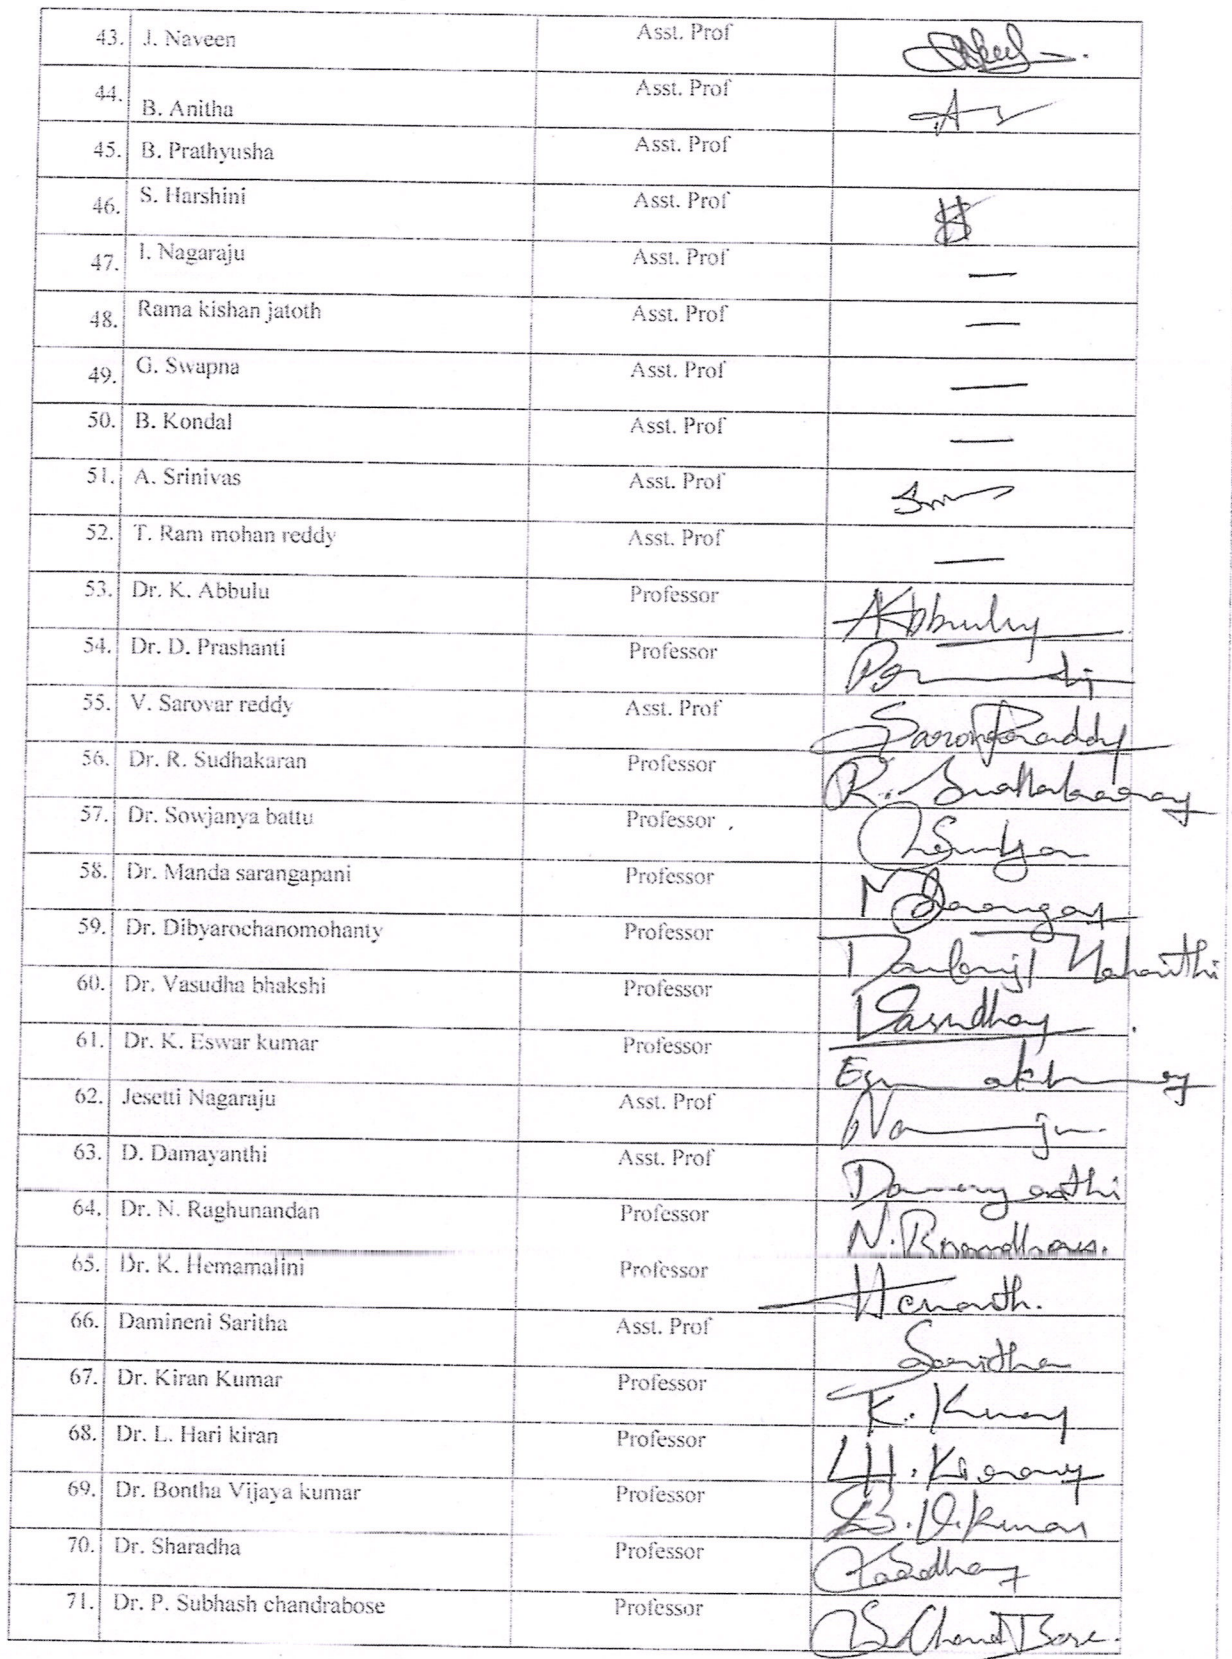 43. J. Naveen Asst. Prof
44. B. Anitha Asst. Prof
45. B. Prathyusha Asst. Prof
46. S. Harshini Asst. Prof
47. I. Nagaraju Asst. Prof —
48. Rama kishan jatoth Asst. Prof —
49. G. Swapna Asst. Prof —
50. B. Kondal Asst. Prof —
51. A. Srinivas Asst. Prof
52. T. Ram mohan reddy Asst. Prof —
53. Dr. K. Abbulu Professor
54. Dr. D. Prashanti Professor
55. V. Sarovar reddy Asst. Prof
56. Dr. R. Sudhakaran Professor
57. Dr. Sowjanya battu Professor
58. Dr. Manda sarangapani Professor
59. Dr. Dibyarochanomohanty Professor
60. Dr. Vasudha bhakshi Professor
61. Dr. K. Eswar kumar Professor
62. Jesetti Nagaraju Asst. Prof
63. D. Damayanthi Asst. Prof
64. Dr. N. Raghunandan Professor
65. Dr. K. Hemamalini Professor
66. Damineni Saritha Asst. Prof
67. Dr. Kiran Kumar Professor
68. Dr. L. Hari kiran Professor
69. Dr. Bontha Vijaya kumar Professor
70. Dr. Sharadha Professor
71. Dr. P. Subhash chandrabose Professor